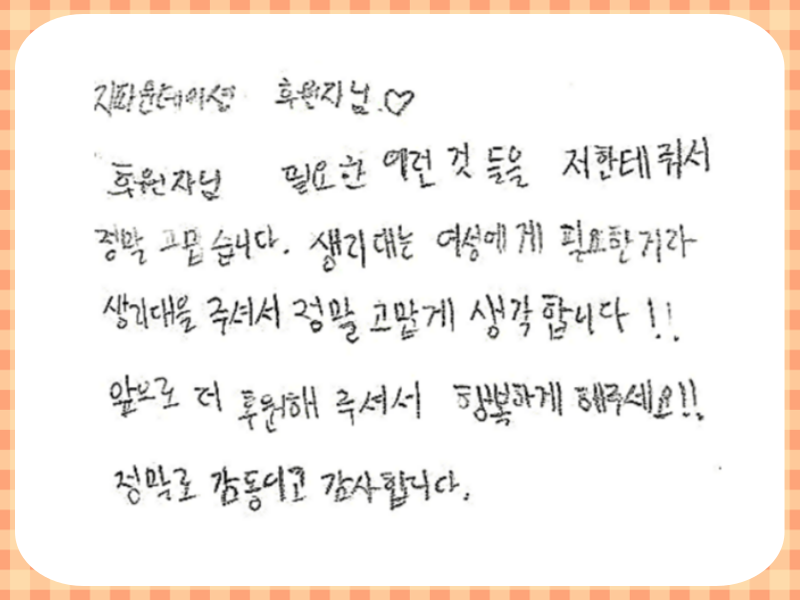 지파운데이션 후원자님.♡
후원자님 필요한 여런 것 들을 저한테 줘서
정말 고맙습니다. 생리대는 여성에게 필요한거라
생리대을 주셔서 정말 고맙게 생각합니다!!
앞으로 더 후원해 주셔서 행복하게 해주세요!!
정말로 감동이고 감사합니다.